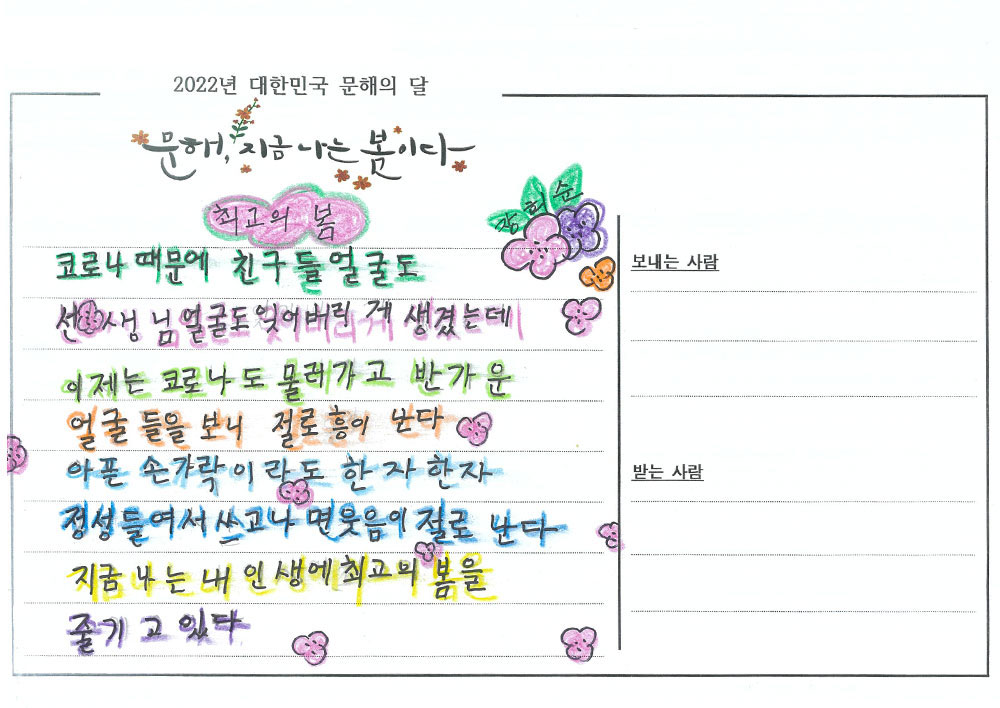 2022년 대한민국 문해의 달
문해, 지금 나는 봄이다
최고의 봄
강희순
코로나 때문에 친구들 얼굴도
선생님 얼굴도 잊어버린 게 생겼는데
이제는 코로나도 물러가고 반가운
얼굴들을 보니 절로 흥이 난다
아픈 손가락이라도 한자한자
정성들여서 쓰고나면 웃음이 절로 난다
지금 나는 내 인생에 최고의 봄을
줄기고 있다
보내는 사람
받는 사람